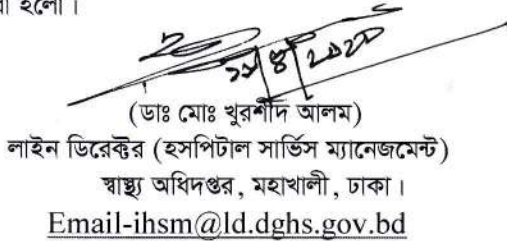 হলো।
(ডাঃ মোঃ খুরশীদ আলম)
লাইন ডিরেক্টর (হসপিটাল সার্ভিস ম্যানেজমেন্ট)
স্বাস্থ্য অধিদপ্তর, মহাখালী, ঢাকা।
Email-ihsm@ld.dghs.gov.bd